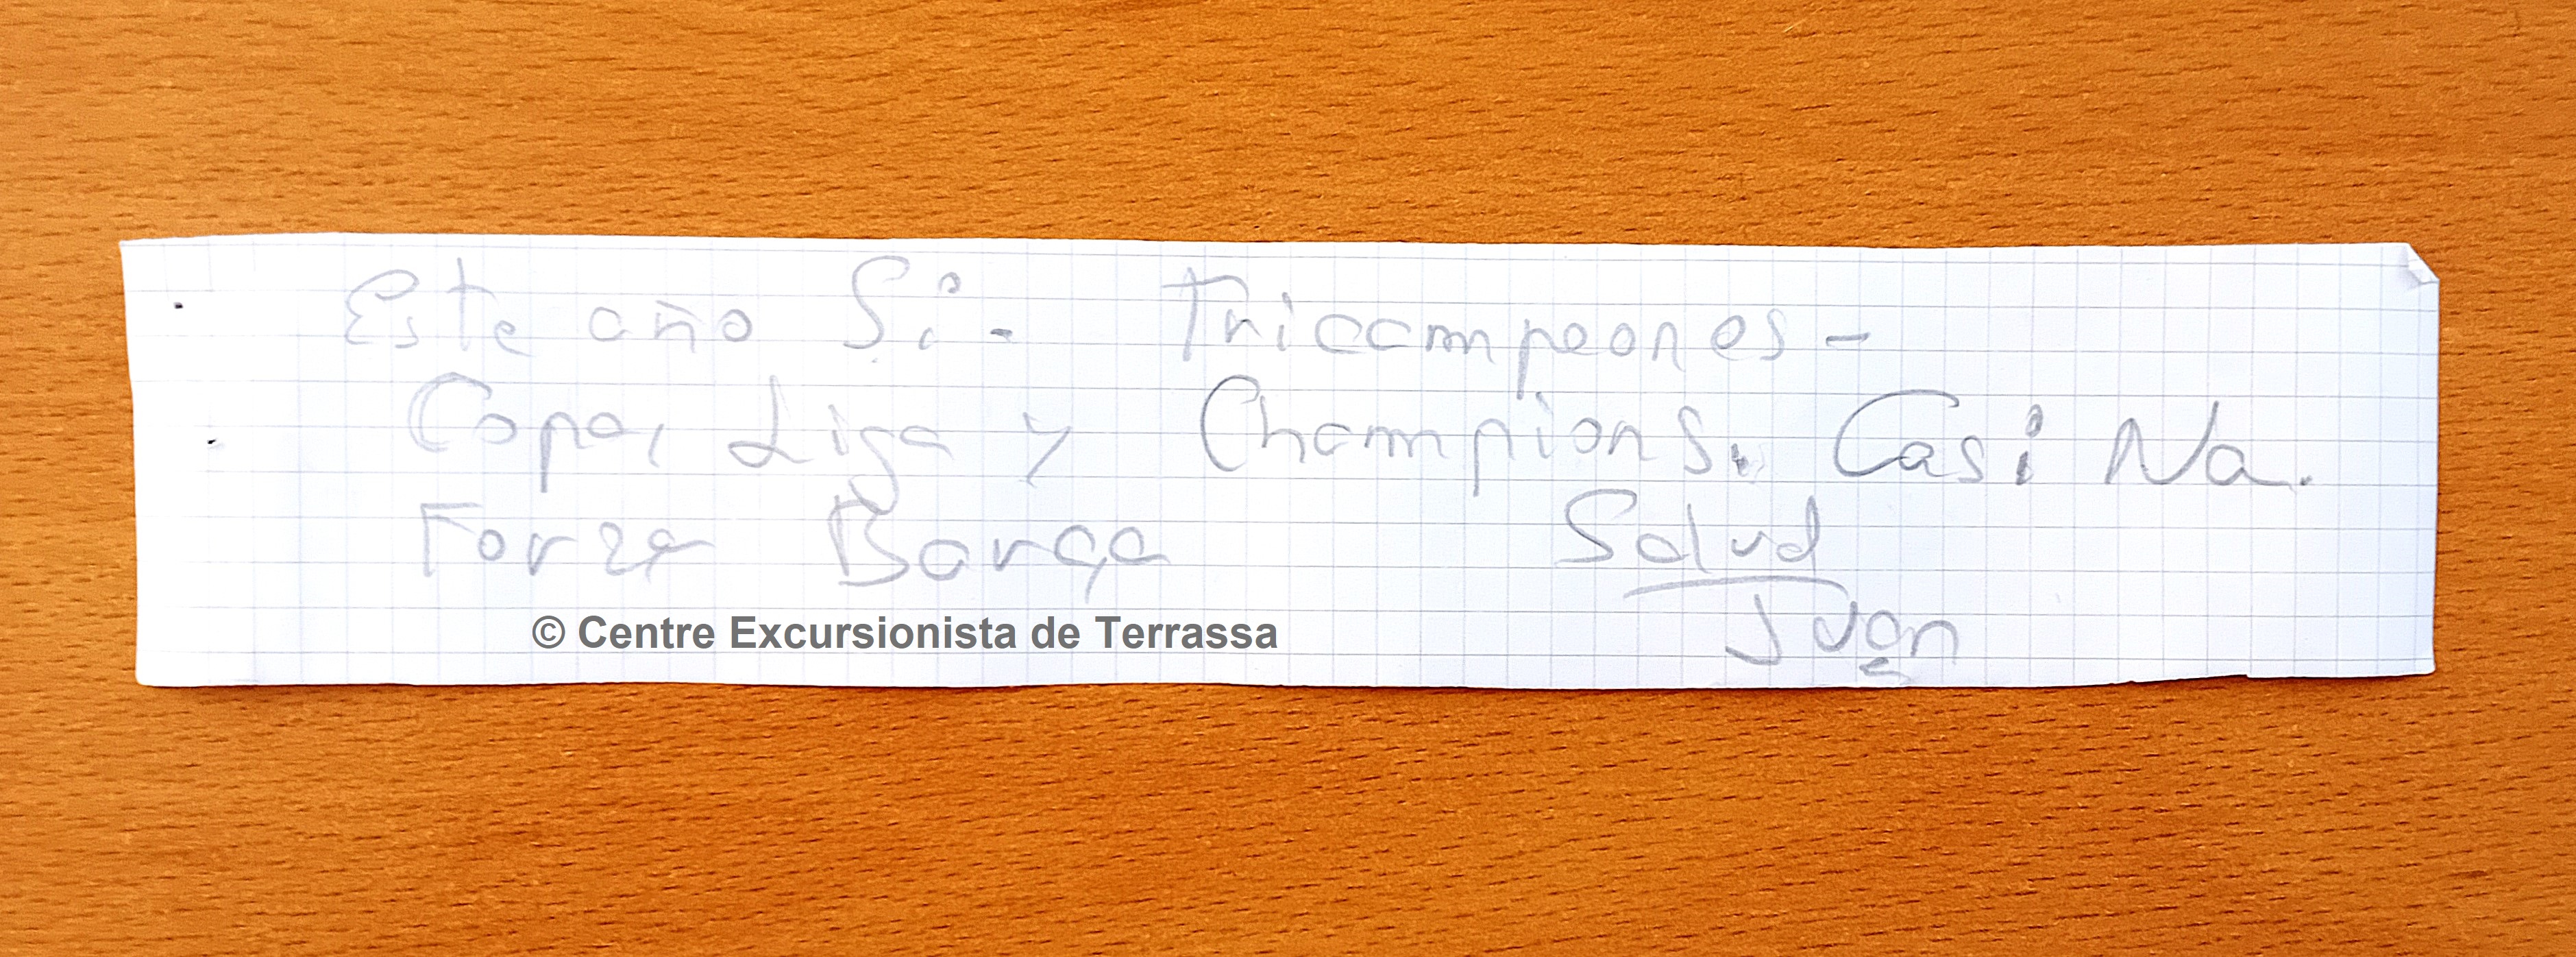 Este año Si. Tricampeones-
Copa, Liga y Champions. Casi Na.
Forza Barça Salud
Juan
© Centre Excursionista de Terrassa